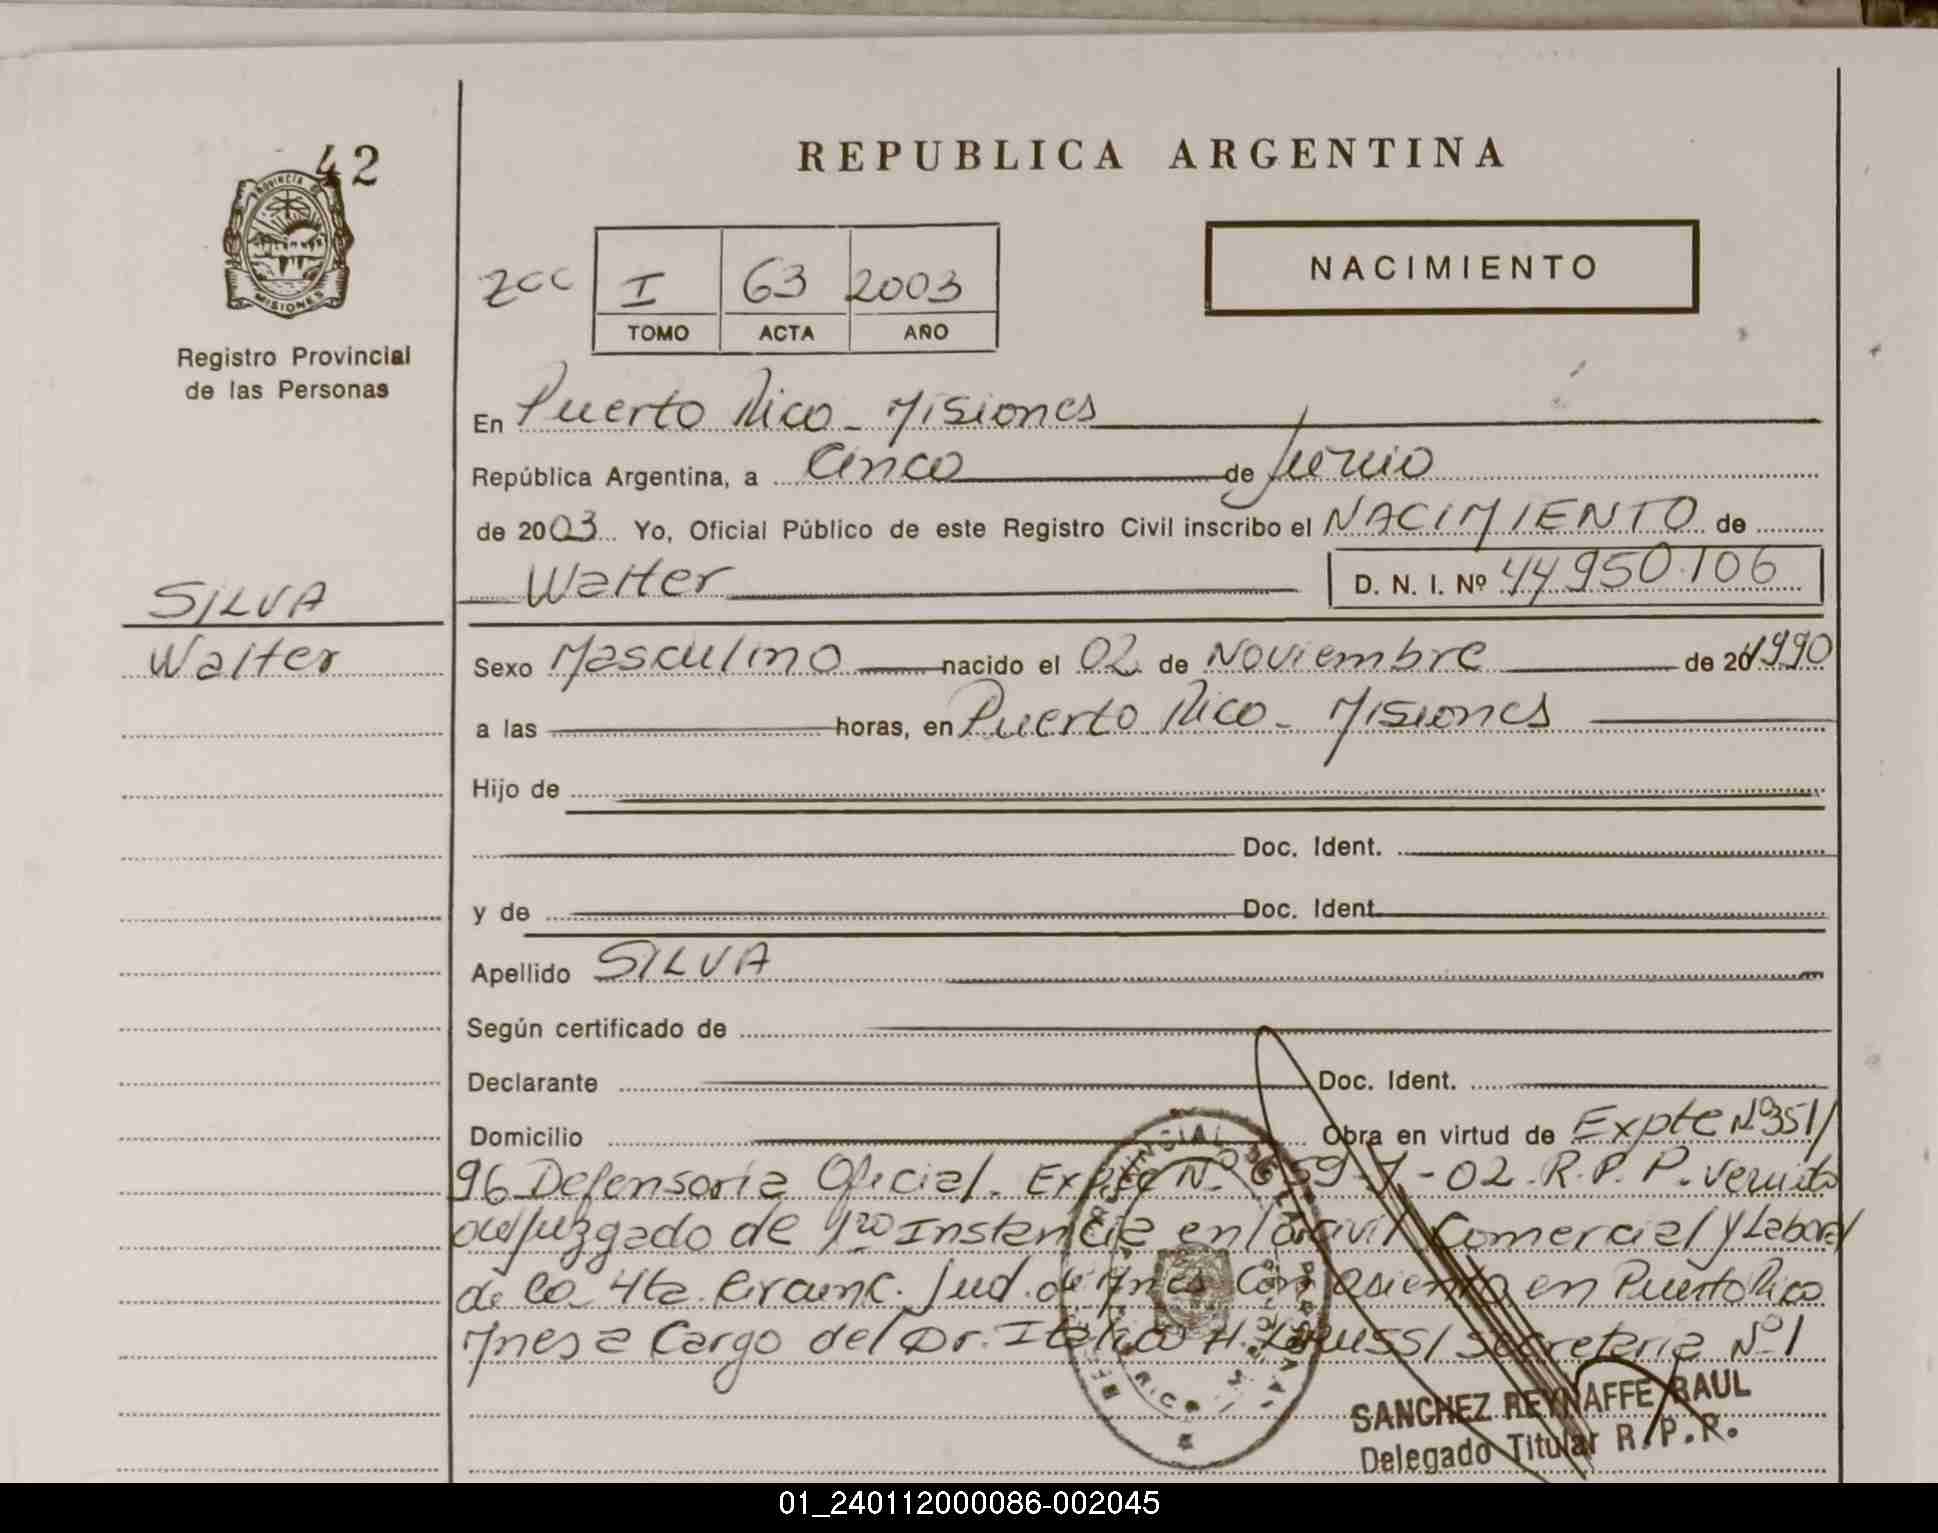 42
PROVINCIA DE
MISIONES
Registro Provincial
de las Personas
SILVA
Walter
REPUBLICA ARGENTINA
NACIMIENTO
I 63 2003
TOMO ACTA AÑO
En Puerto Rico - Misiones
República Argentina, a Cinco de Junio
de 2003 Yo, Oficial Público de este Registro Civil inscribo el NACIMIENTO de
Walter D. N. I. Nº 44950.106
Sexo Masculino nacido el 02 de Noviembre de 20 1990
a las horas, en Puerto Rico - Misiones
Hijo de
Doc. Ident.
y de Doc. Ident.
Apellido SILVA
Según certificado de
Declarante Doc. Ident.
Domicilio Obra en virtud de Expte Nº351/
96 Defensoria Oficial. Expte Nº 659- -02. R.P.P.
Juzgado de 1ro Instancia en lo civil Comercial y Laboral
de la 4ta Circunc. Jud. de Mnes con asiento en Puerto Rico
Mnes a Cargo del Dr. Secretaria Nº1
SANCHEZ REYNAFFE RAUL
Delegado Titular R.P.R.
01_240112000086-002045